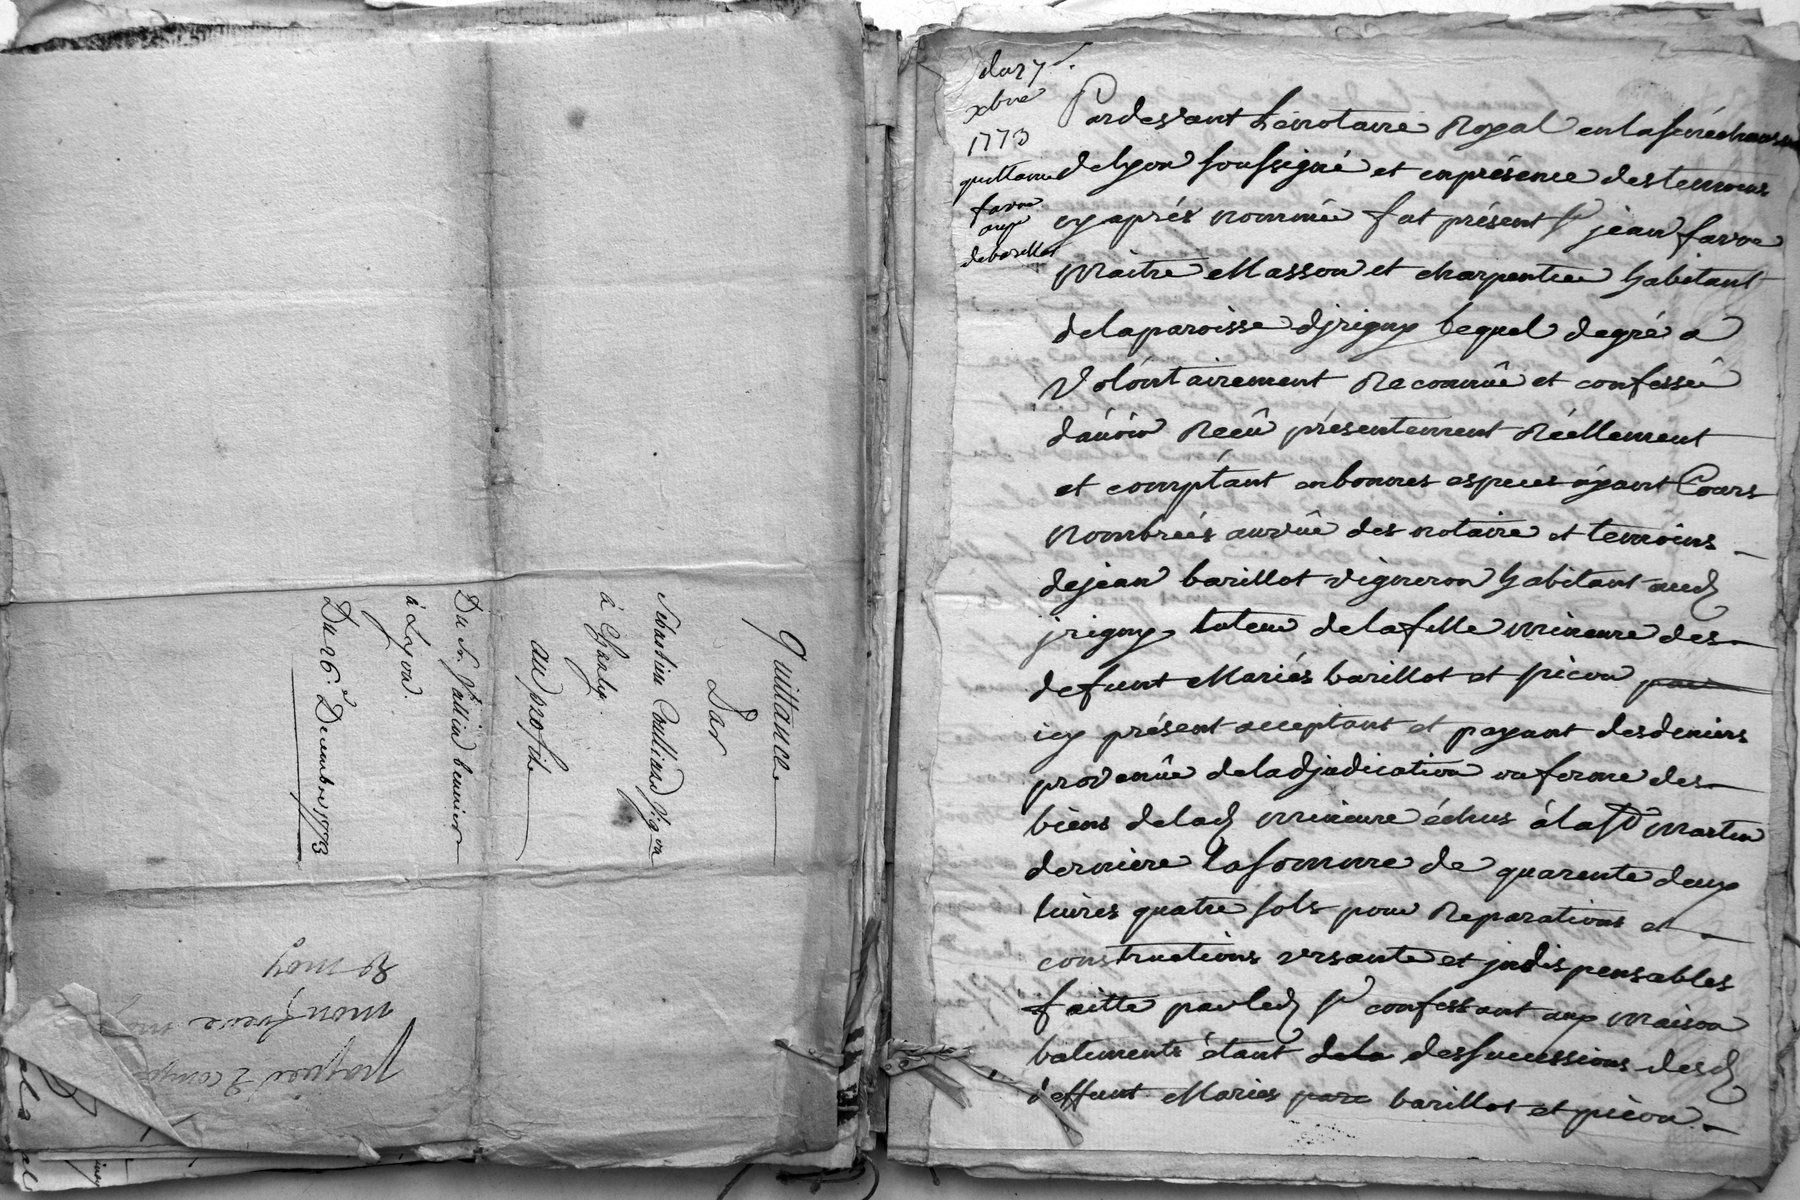 Quittance
Par
Sebastien Coulliard Vig.on
à Charly
au profit
Du Sr.
à Lyon.
Du 26. Decembre 1773
mon frere
& moy
du 27
xbre
1773
quittance
favre
aux
de barillot
Pardevant Le notaire Royal en la sénéchaussé
de lyon soussigné et en présence des temoins
cy aprés nommée fut présent sr jean favre
Maitre Masson et charpentier habitant
de la paroisse d'jrigny lequel de gré a
Volontairement Reconnû et confessé
d'auoir Reçû présentement Réellement
et comptant en bonnes especes ayant Cours
nombrées au vûe des notaire et temoins
de jean barillot vigneron habitant aud
jrigny tuteur de la fille mineure des
defunt Mariés barillot et picon
icy présent acceptant et payant des deniers
provenûe de ladjudication en ferme des
biens de lad mineure échus à la st martin
derniere la somme de quarente deux
liures quatre sols pour Reparations et
constructions et jndispensables
faitte par led sr confessant aux maison
batements étant dela des successions desd
deffunt Mariés barillot et picon